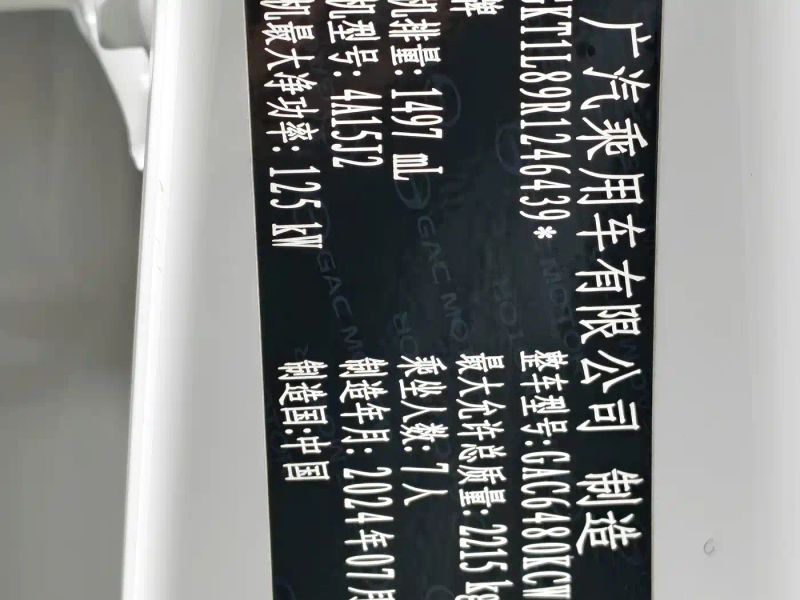 广汽乘用车有限公司 制造
GKT1L89R1246439* 整车型号:GAC6480KCW
牌 最大允许总质量:2215 kg
机排量:1497 mL 乘坐人数:7人
机型号:4A15J2 制造年月:2024年07月
机最大净功率:125 kW 制造国:中国
GAC MOTOR
GAC MOTOR